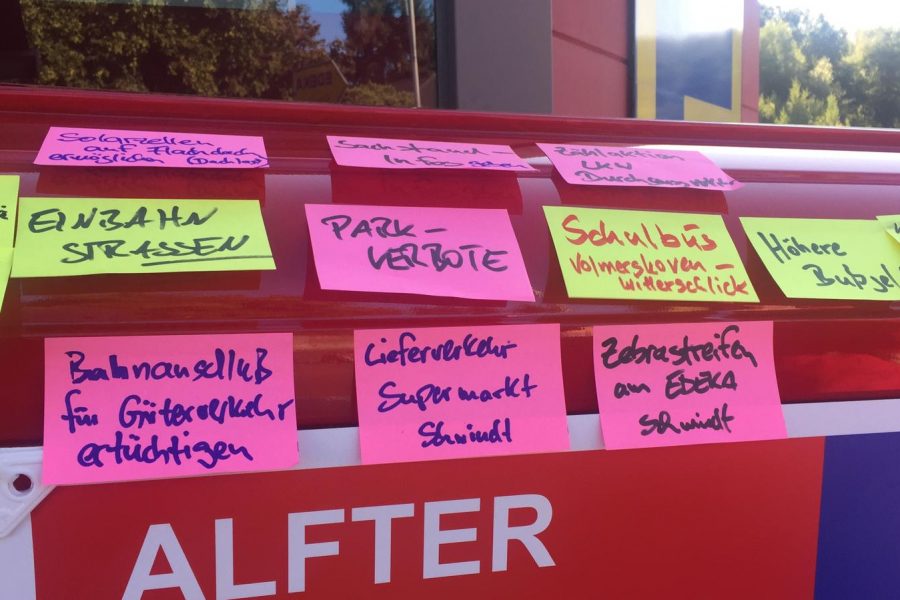 Solarzellen
auf Flachdach
ermöglichen (Dachlast)
Sachstand-
Infos geben
Zählaktion
LKW
EINBAHN
STRASSEN
PARK-
VERBOTE
Schulbus
Volmershoven-
Witterschlick
Höhere
Bußgel
Bahnanschluß
für Güterverkehr
ertüchtigen
Lieferverkehr
Supermarkt
Schwindt
Zebrastreifen
am EDEKA
Schwindt
ALFTER